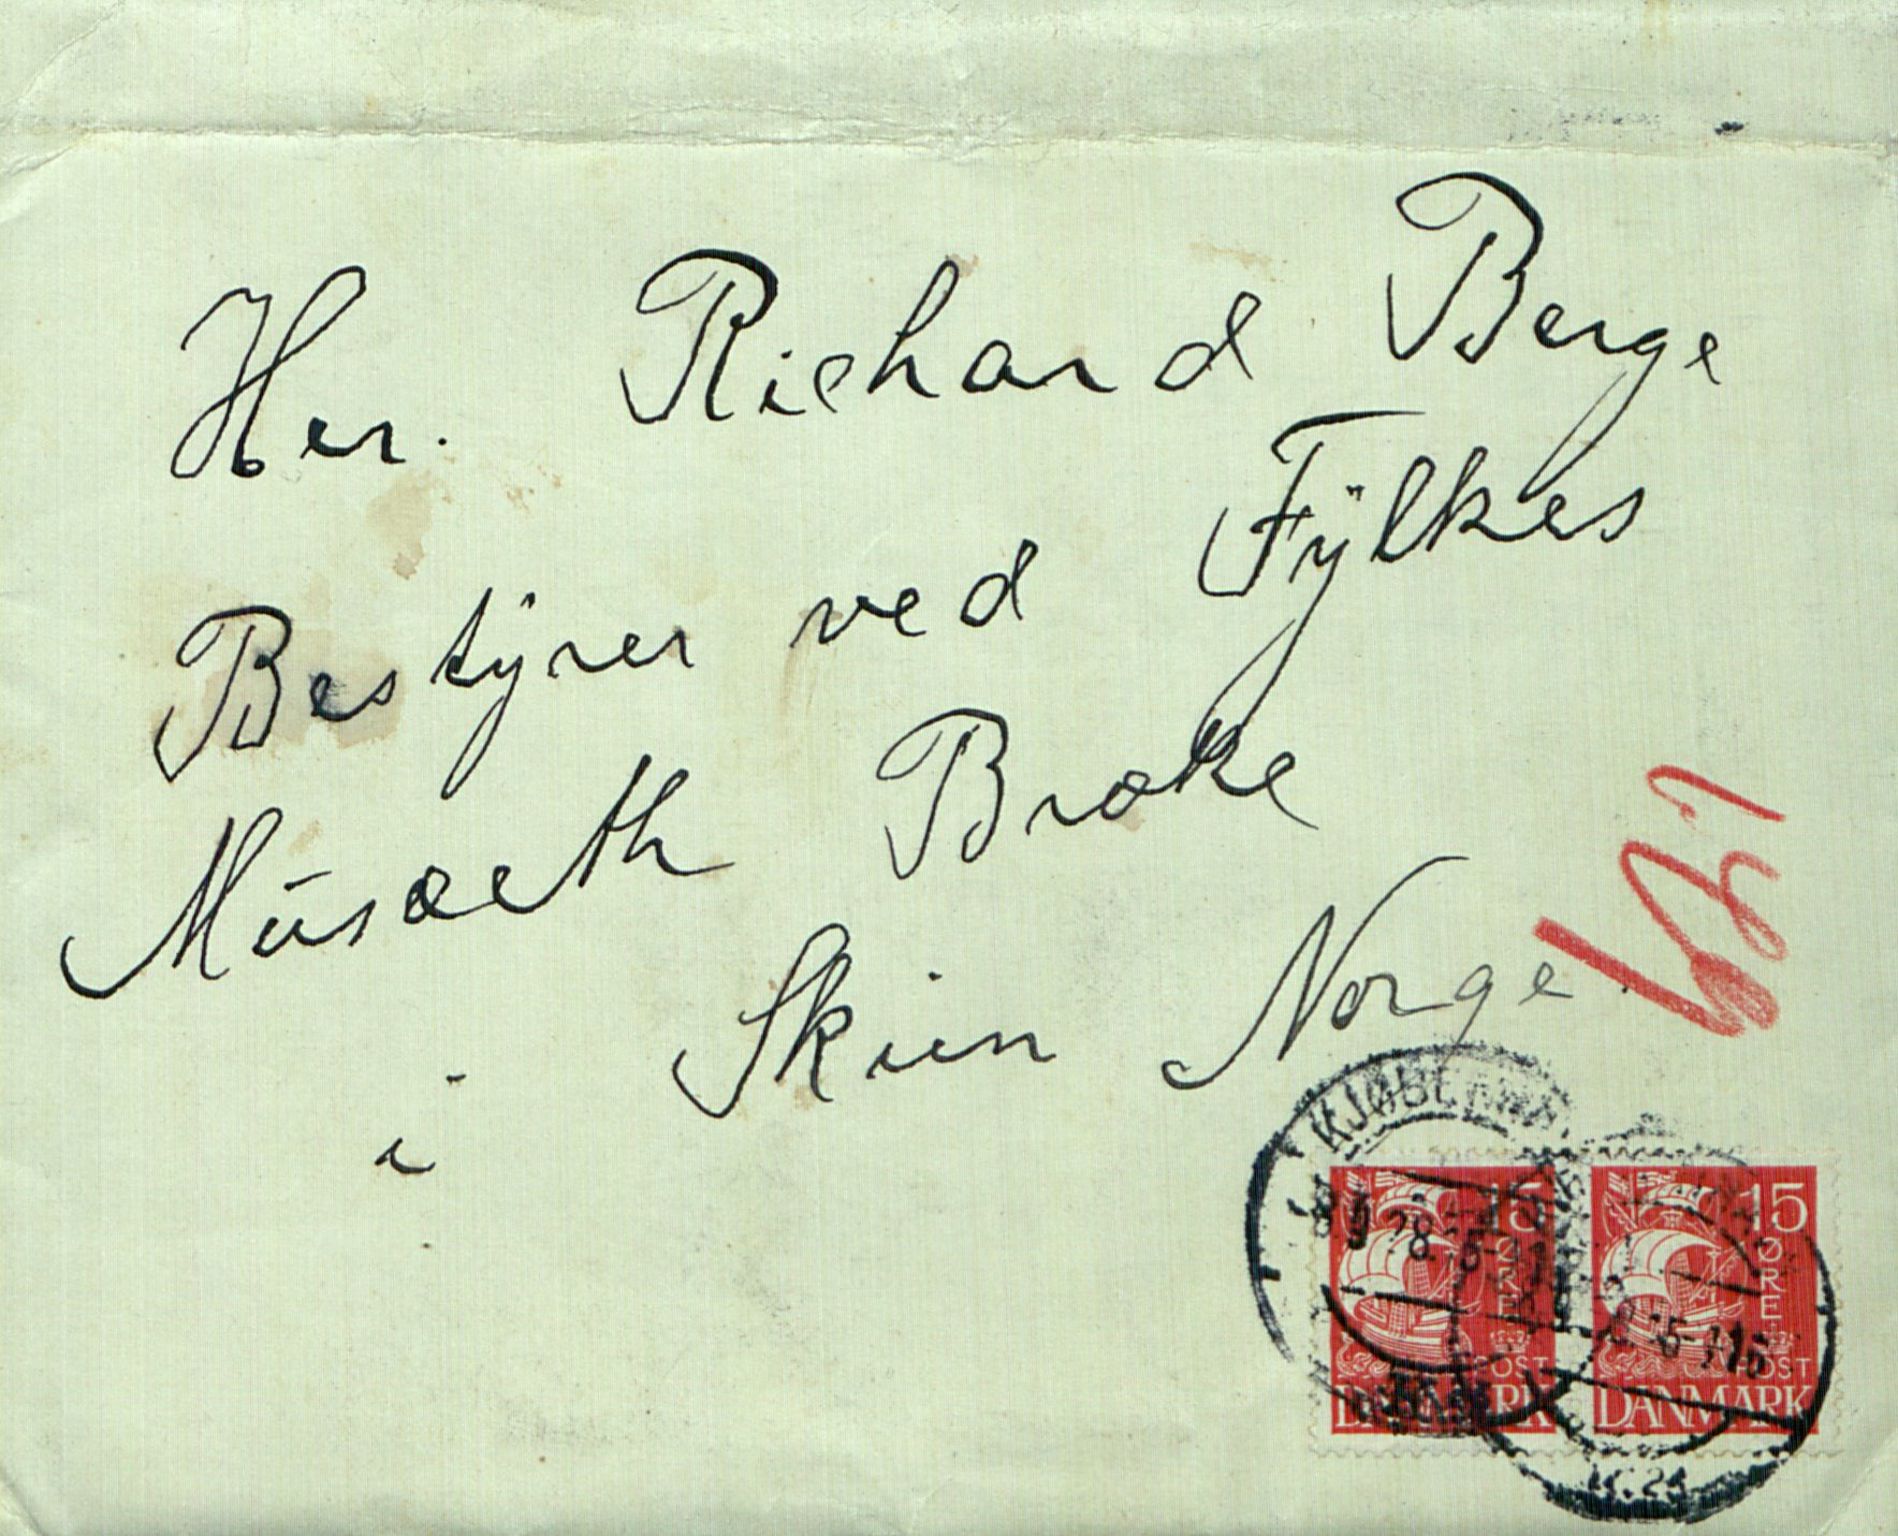 Her. Richard Berge
Bestÿrer ved Fÿlkes
Musæeth Brøke
i Skien Norge.
KJØBENHAVN
15 ØRE
POST
DANMARK
15 ØRE
POST
DANMARK